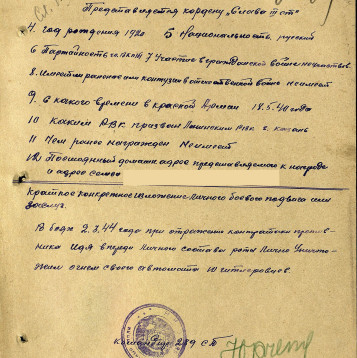 Представляется к ордену „Слава III ст"
4. год рождения 1920 5 Национальность русский
6 Партийность чл. ВКП(б) 7 Участие в гражданской войне не участвов
8. Имеет ли ранение или контузии в отечественной войне не имеет
9. С какого времени в красной Армии 18.5.40 года
10 Каким РВК призван Ленинским РВК г. Казань
11 Чем ранее награжден не имеет
12) Постоянный домашн. адрес представляемого к награде
и адрес семьи
Краткое конкретное изложение личного боевого подвига или
заслуг.
В бою 2.3.44 года при отражении контратаки против-
ника идя впереди личного состава роты лично уничто-
жил огнем своего автомата 10 гитлеровцев.
Командир 239 СП